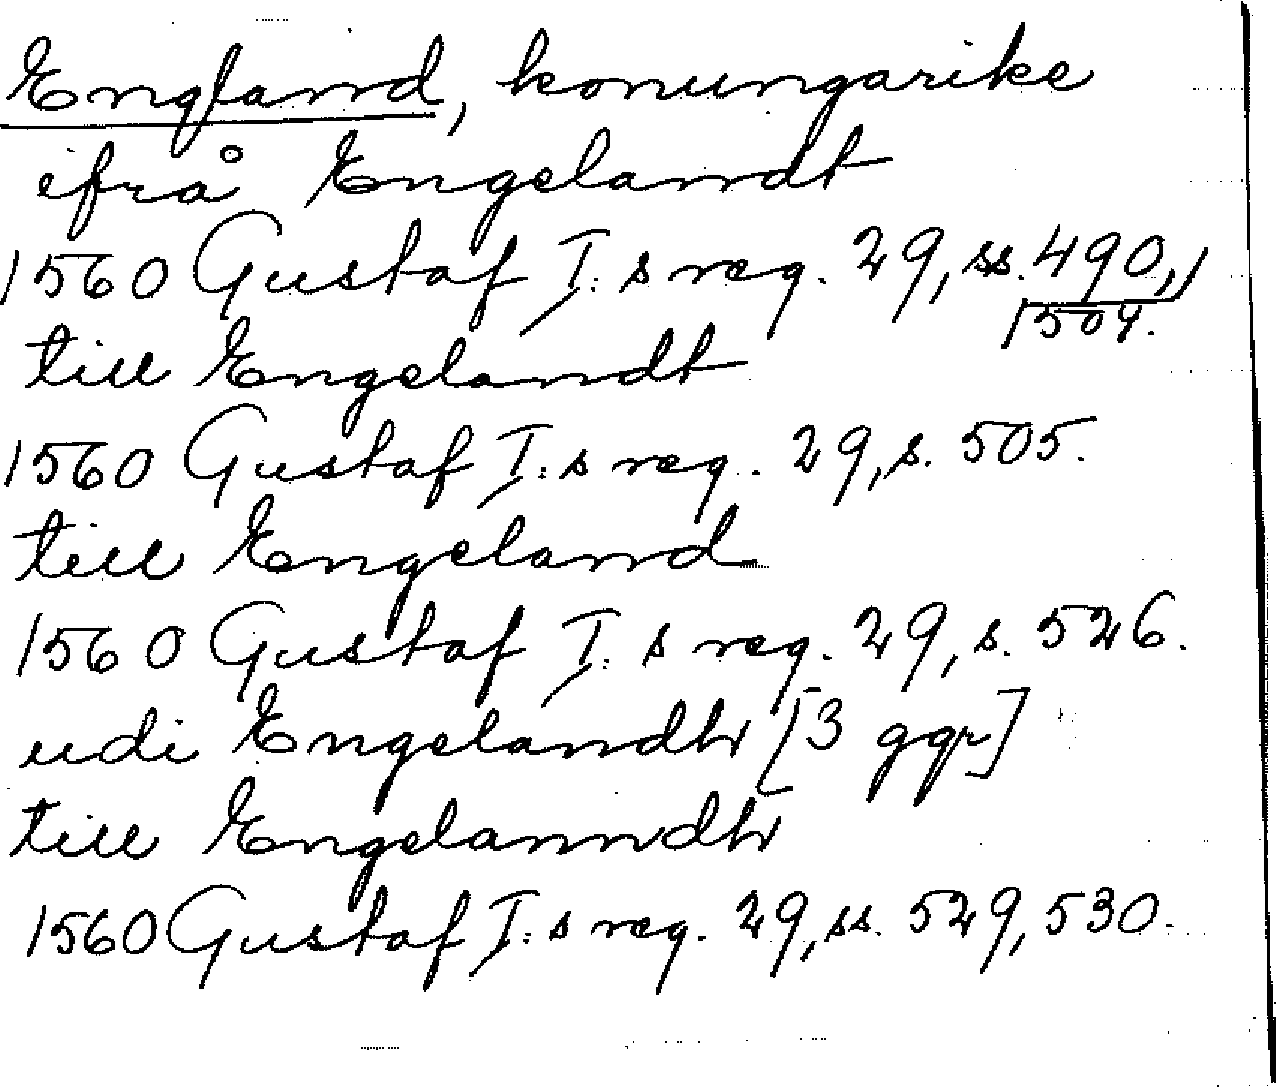 England, konungarike
ifrå Engelandt
1560 Gustaf I:s reg. 29, ss. 490,
504.
till Engelandt
1560 Gustaf I:s reg. 29, s. 505.
till Engeland
1560 Gustaf I:s reg. 29, s. 526.
udi Engelandh [3 ggr]
till Engelanndh
1560 Gustaf I:s reg. 29, ss. 529, 530.